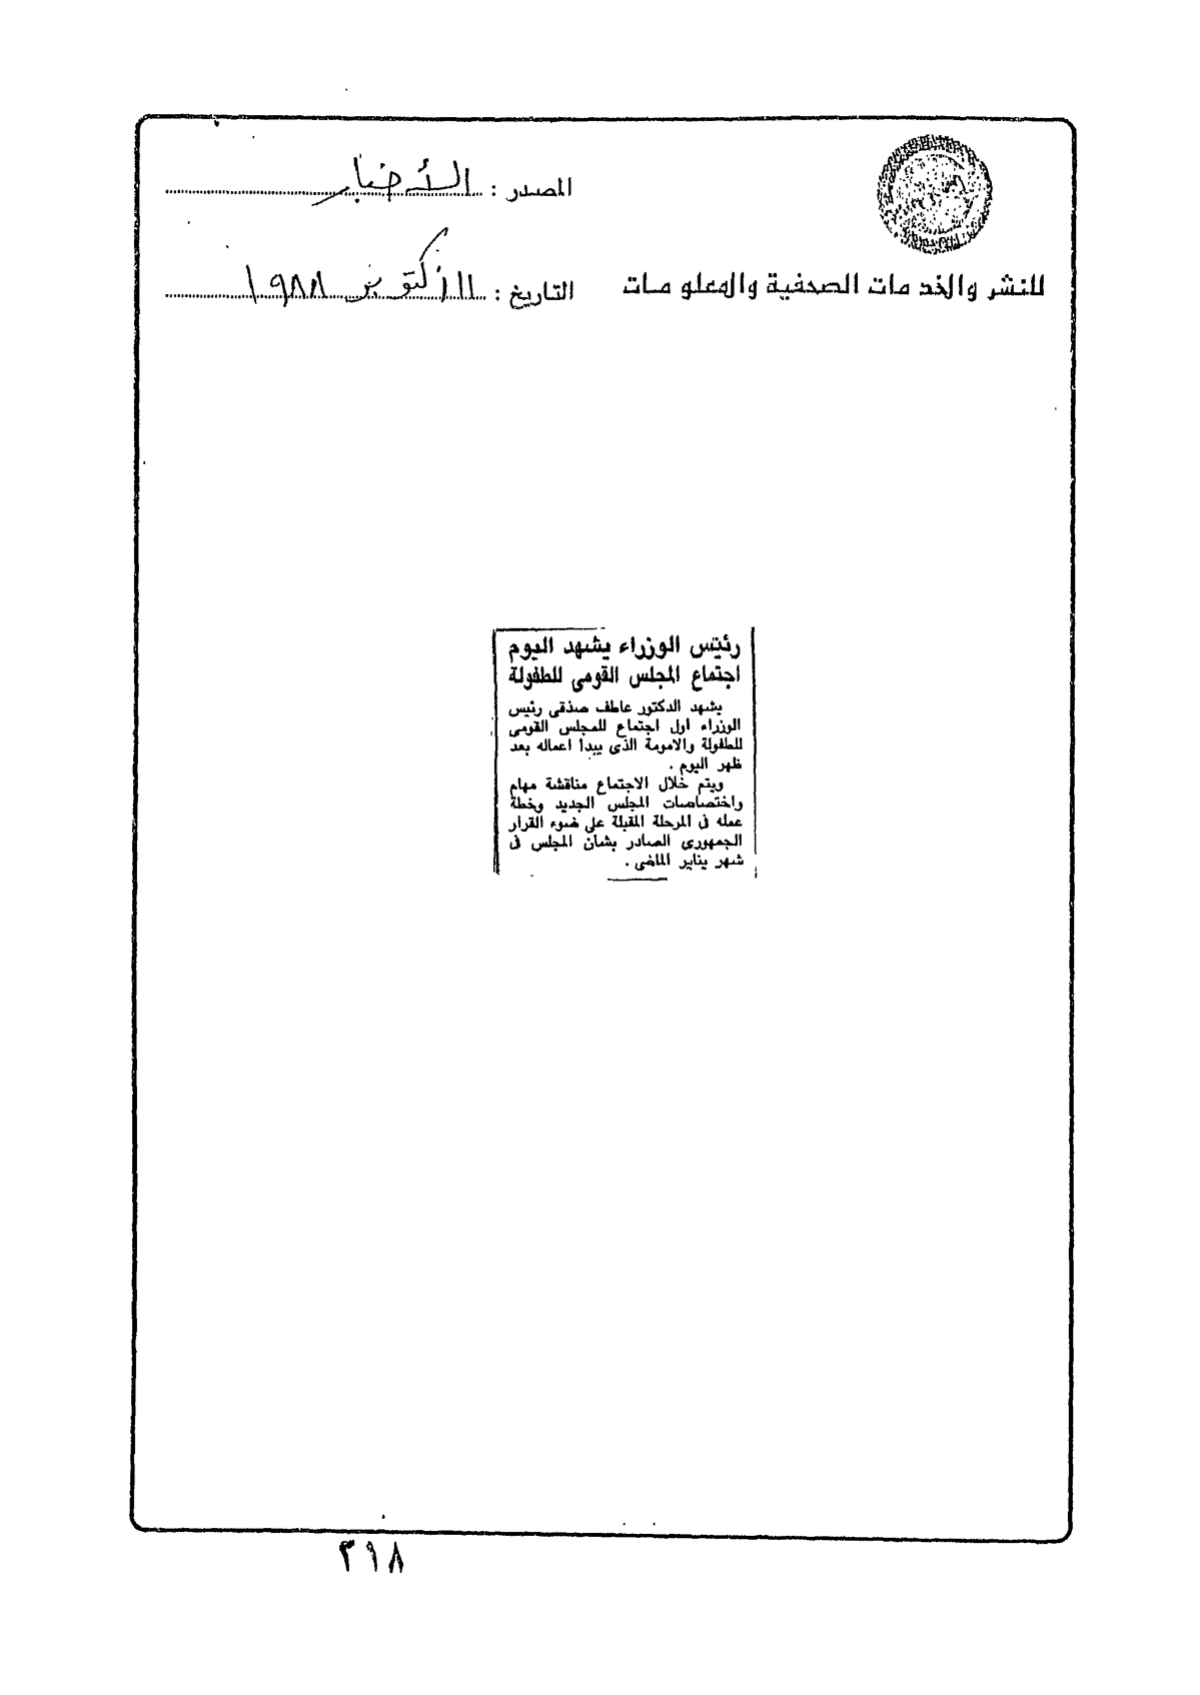 المصدر : الأخبار
للنشر والخدمات الصحفية والمعلومات
التاريخ : ١١ أكتوبر ١٩٨٨
رئيس الوزراء يشهد اليوم
اجتماع المجلس القومى للطفولة
يشهد الدكتور عاطف صدقى رئيس
الوزراء اول اجتماع للمجلس القومى
للطفولة والامومة الذى يبدأ اعماله بعد
ظهر اليوم .
ويتم خلال الاجتماع مناقشة مهام
واختصاصات المجلس الجديد وخطة
عمله فى المرحلة المقبلة على ضوء القرار
الجمهورى الصادر بشأن المجلس فى
شهر يناير الماضى .
٣١٨